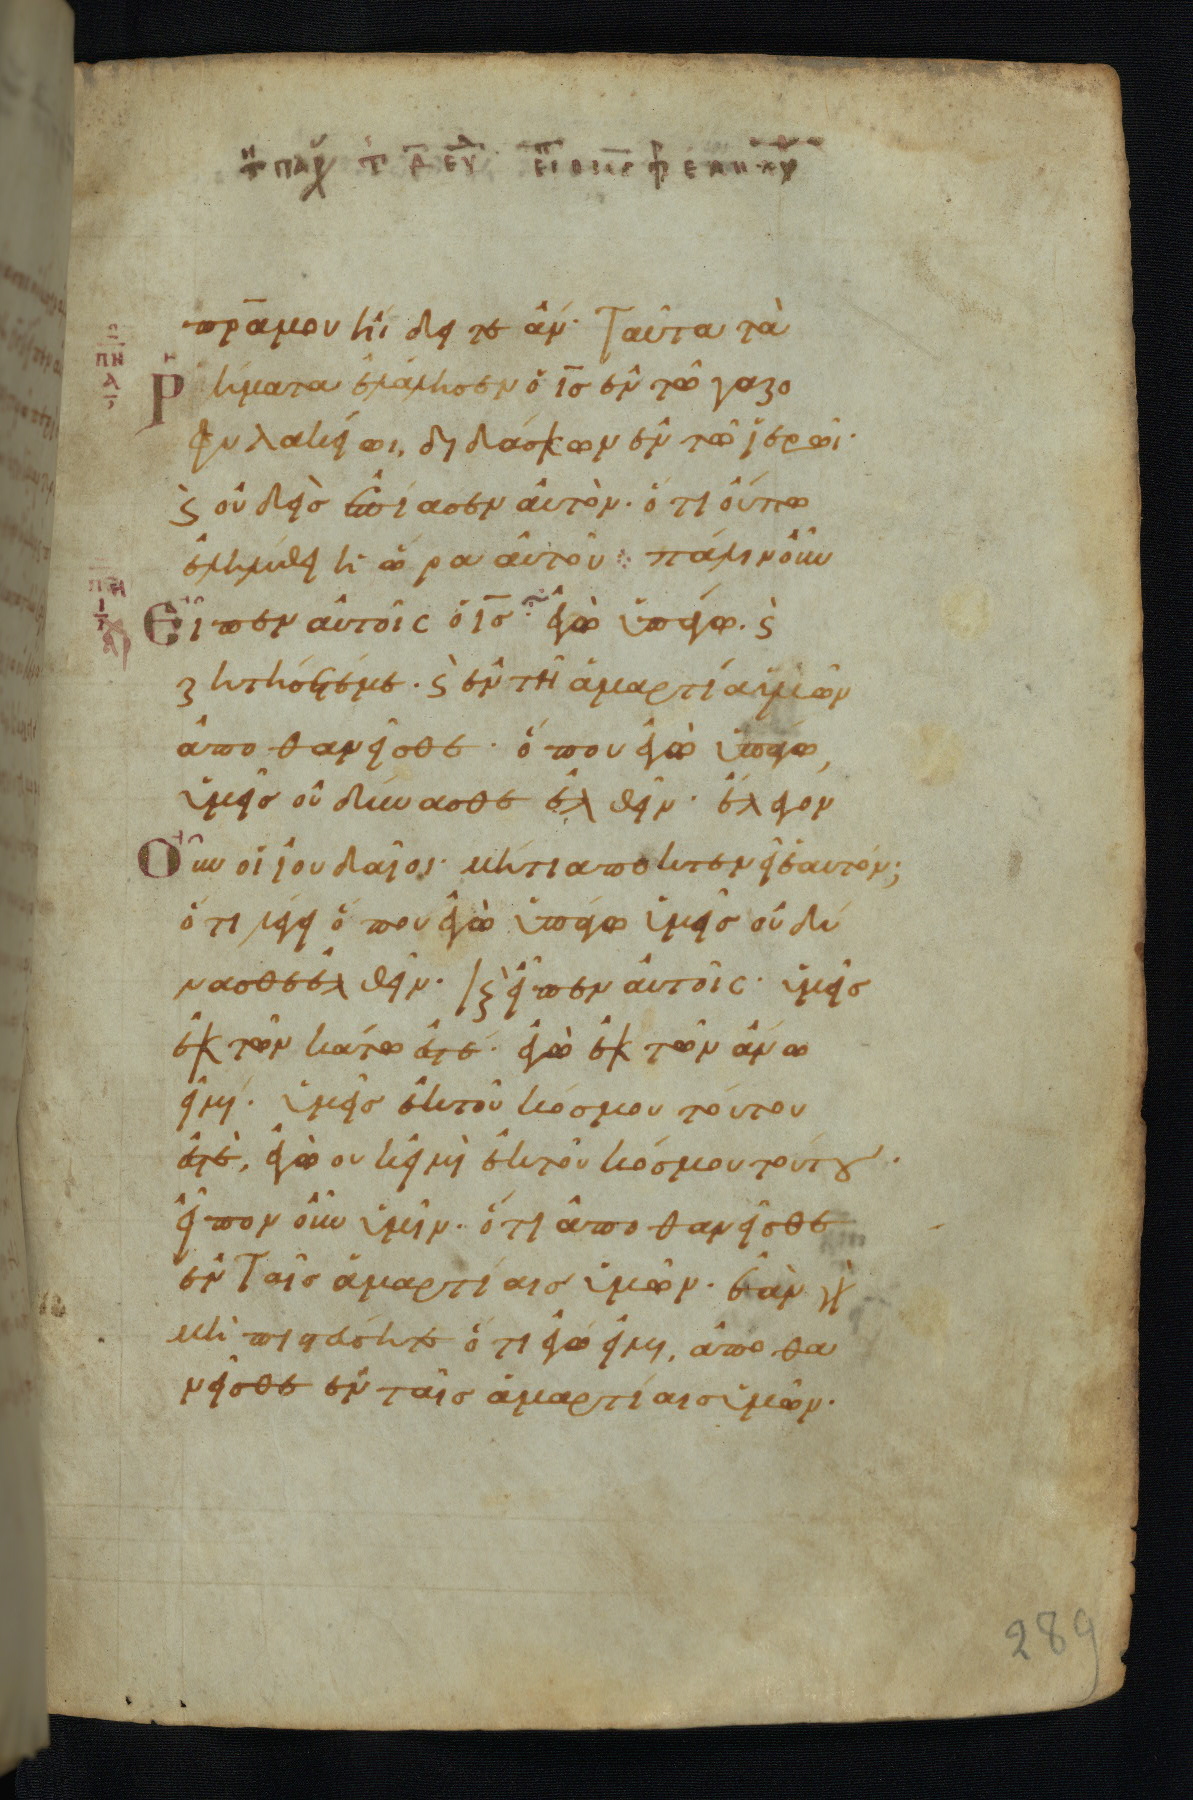 πρ̅α̅ μου ἤιδητε ἄν· Ταῦτα τὰ
Ρήματα ἐλάλησεν ὁ ι̅σ̅ ἐν τῶ γαζο
φυλακείωι, διδάσκων ἐν τῶ ἱερῶι·
ϗ οὐδεὶσ ἐπίασεν αὐτὸν· ὅτι οὔπω
ἐληλύθει ἡ ὥρα αὐτοῦ ⁘ πάλιν οὖν
Εἶπεν αὐτοῖς ὁ ι̅σ̅ ἐγὼ ὑπάγω. ϗ
ζητήσετέ με. ϗ ἐν τῆ ἁμαρτία ὑμῶν
ἀποθανεῖσθε· ὅπου ἐγὼ ὑπάγω,
ὑμεῖσ οὐ δύνασθε ἐλθεῖν· ἔλεγον
Οὖν οἱ ἰουδαῖοι· μήτι αποκτενεῖ ἑαυτόν;
ὅτι λέγει ὅπου ἐγὼ ὑπάγω ὑμεῖσ οὐ δύ
νασθε ἐλθεῖν· ϗ εἶπεν αὐτοῖς· ὑμεῖσ
ἐκ τῶν κάτω ἐστέ· ἐγὼ ἐκ τῶν ἄνω
εἰμί· ὑμεῖσ ἐκ τοῦ κόσμου τούτου
ἐστὲ, ἐγὼ ουκ εἰμὶ ἐκ τοῦ κόσμου τούτου·
εἶπον οὖν ὑμῖν· ὅτι ἀποθανεῖσθε
ἐν Ταῖσ ἁμαρτίαισ ὑμῶν· ἐὰν γὰρ
μὴ πιστεύσητε ὅτι ἐγώ εἰμι, ἀποθα
νεῖσθε ἐν ταῖσ ἁμαρτίαισ ὑμῶν·
289